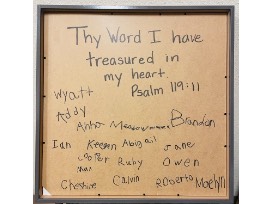 Thy Word I have
treasured in
my heart.
Psalm 119:11
Wyatt
Addy
Brandon
Ian Keegan Abigail Jane
Cooper Ruby Owen
Max
Calvin Roberto Maelyn